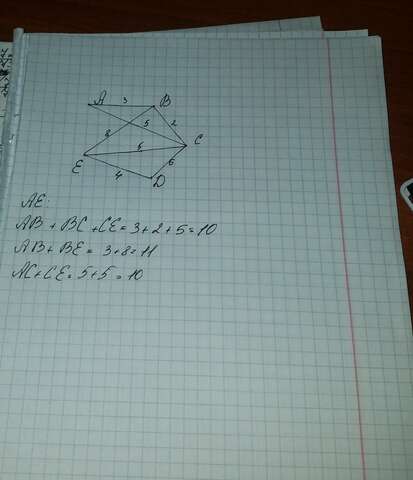 A 3 B
5 2
8 C
5
E 6
4 D
AE:
AB + BC + CE = 3 + 2 + 5 = 10
AB + BE = 3 + 8 = 11
AC + CE = 5 + 5 = 10